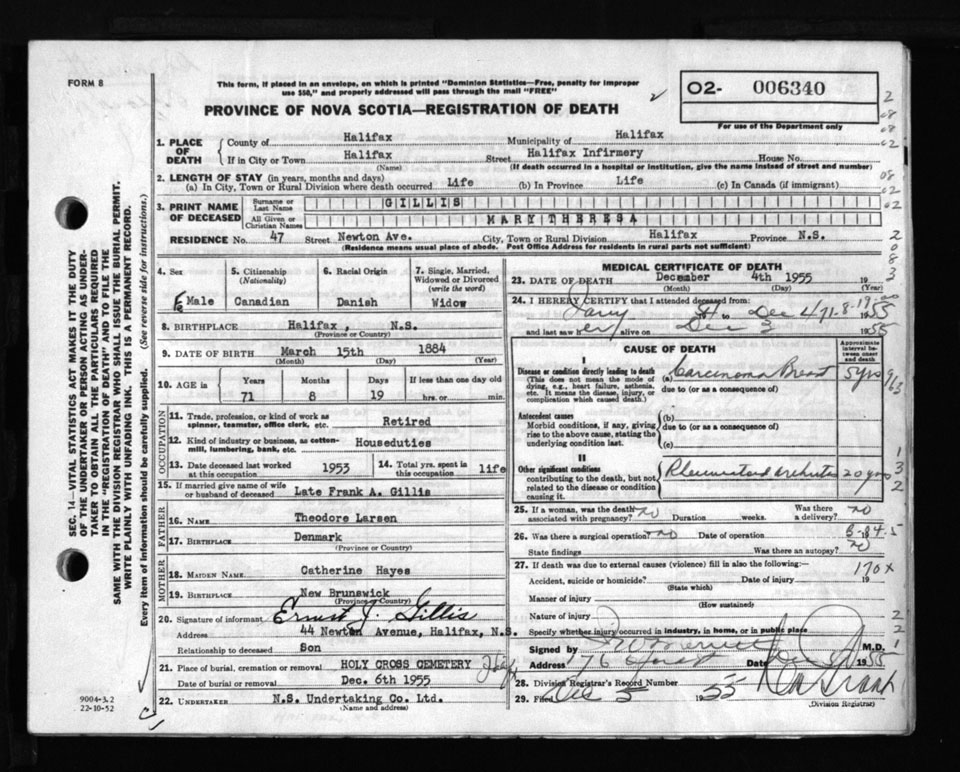 FORM 8
This form, if placed in an envelope, on which is printed "Dominion Statistics—Free, penalty for improper
use $50," and properly addressed will pass through the mail "FREE"
O2- 006340
For use of the Department only
PROVINCE OF NOVA SCOTIA—REGISTRATION OF DEATH
1. PLACE OF DEATH
County of Halifax Municipality of Halifax
If in City or Town Halifax Street Halifax Infirmery House No.
(Name) (If death occurred in a hospital or institution, give the name instead of street and number)
2. LENGTH OF STAY (in years, months and days)
(a) In City, Town or Rural Division where death occurred Life (b) In Province Life (c) In Canada (if immigrant)
3. PRINT NAME OF DECEASED
Surname or Last Name GILLIS
All Given or Christian Names MARY THERESA
RESIDENCE No. 47 Street Newton Ave. City, Town or Rural Division Halifax Province N.S.
(Residence means usual place of abode. Post Office Address for residents in rural parts not sufficient)
4. Sex 5. Citizenship (Nationality) 6. Racial Origin 7. Single, Married, Widowed or Divorced (write the word)
feMale Canadian Danish Widow
8. BIRTHPLACE Halifax, N.S.
(Province or Country)
9. DATE OF BIRTH March 15th 1884
(Month) (Day) (Year)
10. AGE in Years Months Days If less than one day old
71 8 19 hrs. or min.
OCCUPATION
11. Trade, profession, or kind of work as
spinner, teamster, office clerk, etc. Retired
12. Kind of industry or business, as cotton-
mill, lumbering, bank, etc. Houseduties
13. Date deceased last worked at this occupation 1953 14. Total yrs. spent in this occupation life
15. If married give name of wife
or husband of deceased Late Frank A. Gillis
FATHER
16. NAME Theodore Larsen
17. BIRTHPLACE Denmark
(Province or Country)
MOTHER
18. MAIDEN NAME Catherine Hayes
19. BIRTHPLACE New Brunswick
(Province or Country)
20. Signature of informant Ernest J. Gillis
Address 44 Newton Avenue, Halifax, N.S.
Relationship to deceased Son
21. Place of burial, cremation or removal HOLY CROSS CEMETERY Hlfx
Date of burial or removal Dec. 6th 1955
22. UNDERTAKER N.S. Undertaking Co. Ltd.
(Name and address)
MEDICAL CERTIFICATE OF DEATH
23. DATE OF DEATH December 4th 1955 19
(Month) (Day)
24. I HEREBY CERTIFY that I attended deceased from:
to Dec 4 1955
and last saw her alive on Dec 3 1955
CAUSE OF DEATH
Approximate interval between onset and death
I
Disease or condition directly leading to death
(This does not mean the mode of
dying, e.g., heart failure, asthenia,
etc. It means the disease, injury, or
complication which caused death.)
(a) Carcinoma Breast 5 yrs
due to (or as a consequence of)
Antecedent causes
Morbid conditions, if any, giving
rise to the above cause, stating the
underlying condition last.
(b)
due to (or as a consequence of)
(c)
II
Other significant conditions
contributing to the death, but not
related to the disease or condition
causing it.
Rheumatoid arthritis 20 years
25. If a woman, was the death
associated with pregnancy? no Duration weeks. Was there a delivery? no
26. Was there a surgical operation? no Date of operation
State findings Was there an autopsy? no
27. If death was due to external causes (violence) fill in also the following:— 170x
Accident, suicide or homicide? Date of injury 19
(State which)
Manner of injury
(How sustained)
Nature of injury
Specify whether injury occurred in industry, in home, or in public place
Signed by M.D.
Address 76 Date 1955
28. Division Registrar's Record Number
29. Filed Dec 5 1955
(Division Registrar)
SEC. 14—VITAL STATISTICS ACT MAKES IT THE DUTY
OF THE UNDERTAKER OR PERSON ACTING AS UNDER-
TAKER TO OBTAIN ALL THE PARTICULARS REQUIRED
IN THE "REGISTRATION OF DEATH" AND TO FILE THE
SAME WITH THE DIVISION REGISTRAR WHO SHALL ISSUE THE BURIAL PERMIT.
WRITE PLAINLY WITH UNFADING INK. THIS IS A PERMANENT RECORD.
Every item of information should be carefully supplied. (See reverse side for instructions.)
9004-3.2
22-10-52